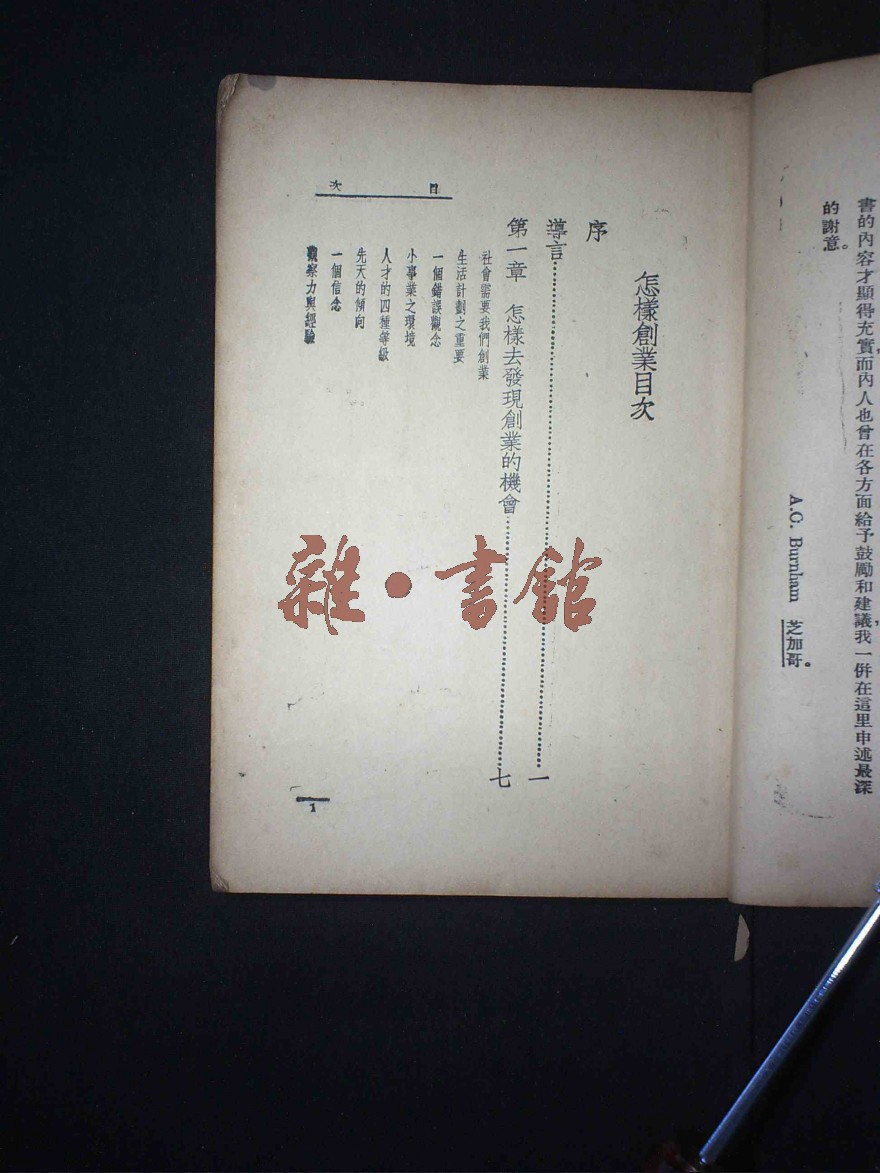 書的內容才顯得充實，而內人也曾在各方面給予鼓勵和建議，我一併在這里申述最深
的謝意。
A.C. Burnham 芝加哥。
目次
怎樣創業目次
序
導言……一
第一章　怎樣去發現創業的機會……七
社會需要我們創業
生活計劃之重要
一個錯誤觀念
小事業之環境
人才的四種等級
先天的傾向
一個信念
觀察力與經驗
1
雜·書館